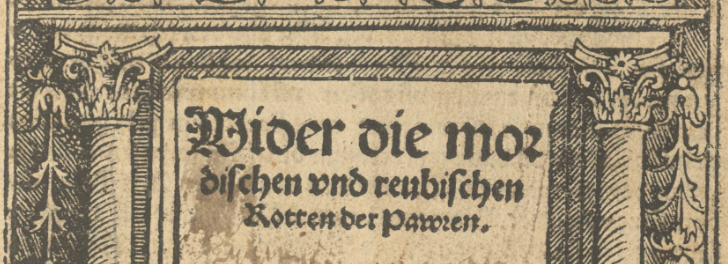 Wider die mor
dischen vnd reubischen
Rotten der Pawren.